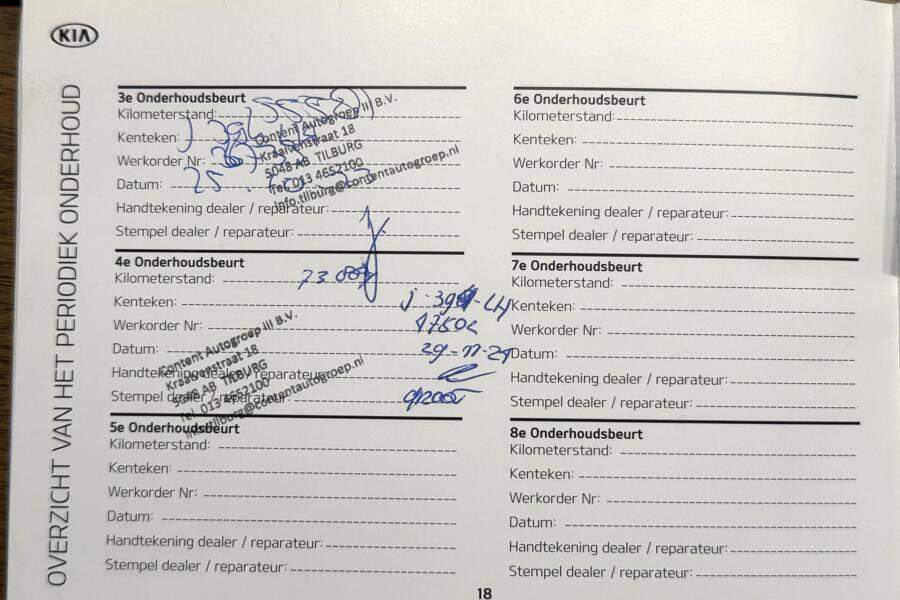 KIA
OVERZICHT VAN HET PERIODIEK ONDERHOUD
3e Onderhoudsbeurt
Kilometerstand:
Kenteken:
Werkorder Nr:
Datum: 25
Handtekening dealer / reparateur:
Stempel dealer / reparateur:
Content Autogroep III B.V.
Kraaivenstraat 18
5048 AB TILBURG
Tel 013 4652100
info.tilburg@contentautogroep.nl
4e Onderhoudsbeurt
Kilometerstand:
Kenteken:
Werkorder Nr:
Datum:
Handtekening dealer / reparateur:
Stempel dealer / reparateur:
Content Autogroep III B.V.
Kraaivenstraat 18
5048 AB TILBURG
Tel 013 4652100
info.tilburg@contentautogroep.nl
5e Onderhoudsbeurt
Kilometerstand:
Kenteken:
Werkorder Nr:
Datum:
Handtekening dealer / reparateur:
Stempel dealer / reparateur:
6e Onderhoudsbeurt
Kilometerstand:
Kenteken:
Werkorder Nr:
Datum:
Handtekening dealer / reparateur:
Stempel dealer / reparateur:
7e Onderhoudsbeurt
Kilometerstand:
Kenteken:
Werkorder Nr:
Datum:
Handtekening dealer / reparateur:
Stempel dealer / reparateur:
8e Onderhoudsbeurt
Kilometerstand:
Kenteken:
Werkorder Nr:
Datum:
Handtekening dealer / reparateur:
Stempel dealer / reparateur:
18